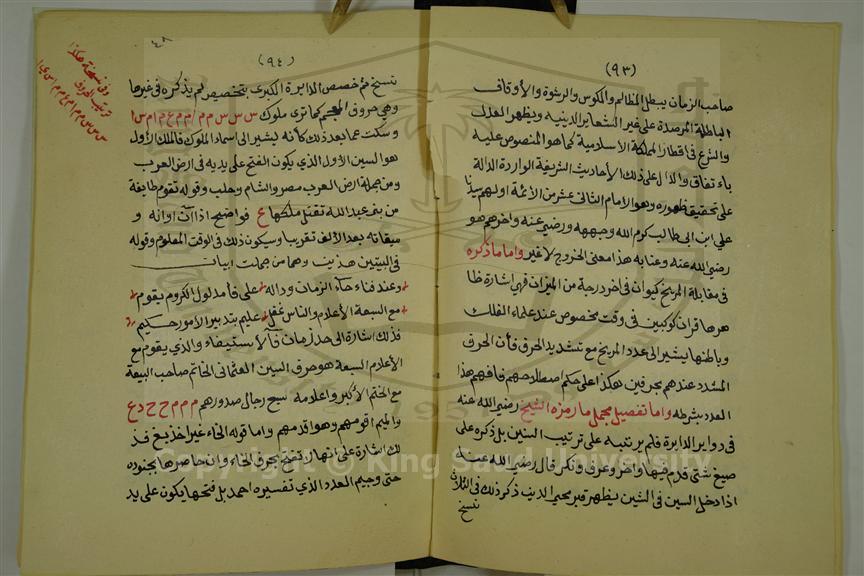 (٩٣)
صاحب الزمان يبطل المظالم والمكوس والرشوة والأوقاف
الباطلة المرصدة على غير الشعاير الدينيه ويظهر العدل
والشرع في اقطار المملكة الأسلامية كما هو المنصوص عليه
باء تفاق والدال على ذلك الأحاديث الشريفة الواردة الدالة
على تحقيق ظهوره وهو الامام الثانى عشر من الأئمة اولهم سيدنا
علي ابن ابي طالب كرم الله وجهه ورضي عنه واخرهم هو
رضي الله عنه وعنا به هذا معنى الخروج لاغير واما ما ذكره
في مقابلة المريخ كيوان في اخر درجة من الميزان فهي اشارة ظا
هرها قران كوكبين في وقت مخصوص عند علماء الفلك
وباطنها يشير الى عدد المريخ مع تشديد الحرف فأن الحرف
المشدد عندهم بحرفين هكذا على حكم اصطلاحهم فافهم هذا
العدد بشرطه واما تفصيل مجمل ما رمزه الشيخ رضي الله عنه
في دواير الدايرة فلم يرتبه على ترتيب السنين بل ذكره على
صيغ شتى قدم فيها واخر وعرف ونكر قال رضي الله عنه
اذا دخل السين في الشين يظهر قبر محيي الدين ذكر ذلك في الثلاث
نسخ
٤٨
(٩٤)
نسخ ثم خصص الدايرة الكبرى بتخصيص لم يذكره في غيرها
وهي حروف المعجم كما ترى ملوك س س س م م أ م م ع م ام س ا
وسكت عما بعد ذلك كأنه يشير الى اسماء الملوك فالملك الأول
هو السين الأول الذي يكون الفتح على يديه في ارض العرب
ومن جملة ارض العرب مصر والشام وحلب وقوله تقوم طايفة
من بني عبد الله تقتل ملكها ع فواضح اذا آن اوانه و
ميقاته بعد الألف تقريبا وسيكون ذلك في الوقت المعلوم وقوله
في البيتين هذين وهما من جملت ابيات
وعند فناء خآء الزمان وداله على فأ مدلول الكروم يقوم
مع السبعة الأعلام والناس غفل عليم بتدبير الأمور حكيم
فذلك اشارة الى حد زمان فآ لأستيفاء والذي يقوم مع
الأعلام السبعة هو حرف السين العثماني الخاتم صاحب البيعة
مع الختم الأكبر واعلامه سبع رجال صدورهم م م م ح ح د ع
والميم اقومهم وهو اقدمهم واما قوله الخاء غير اخذ يغ فذ
لك اشارة على انها تفتح بحرف الخاء وان حاصرها بجنوده
حتى وجيم العدد الذي تفسيره احمد بل فتحها يكون على يد
وفي نسخة هكذا
ترتيب الحروف